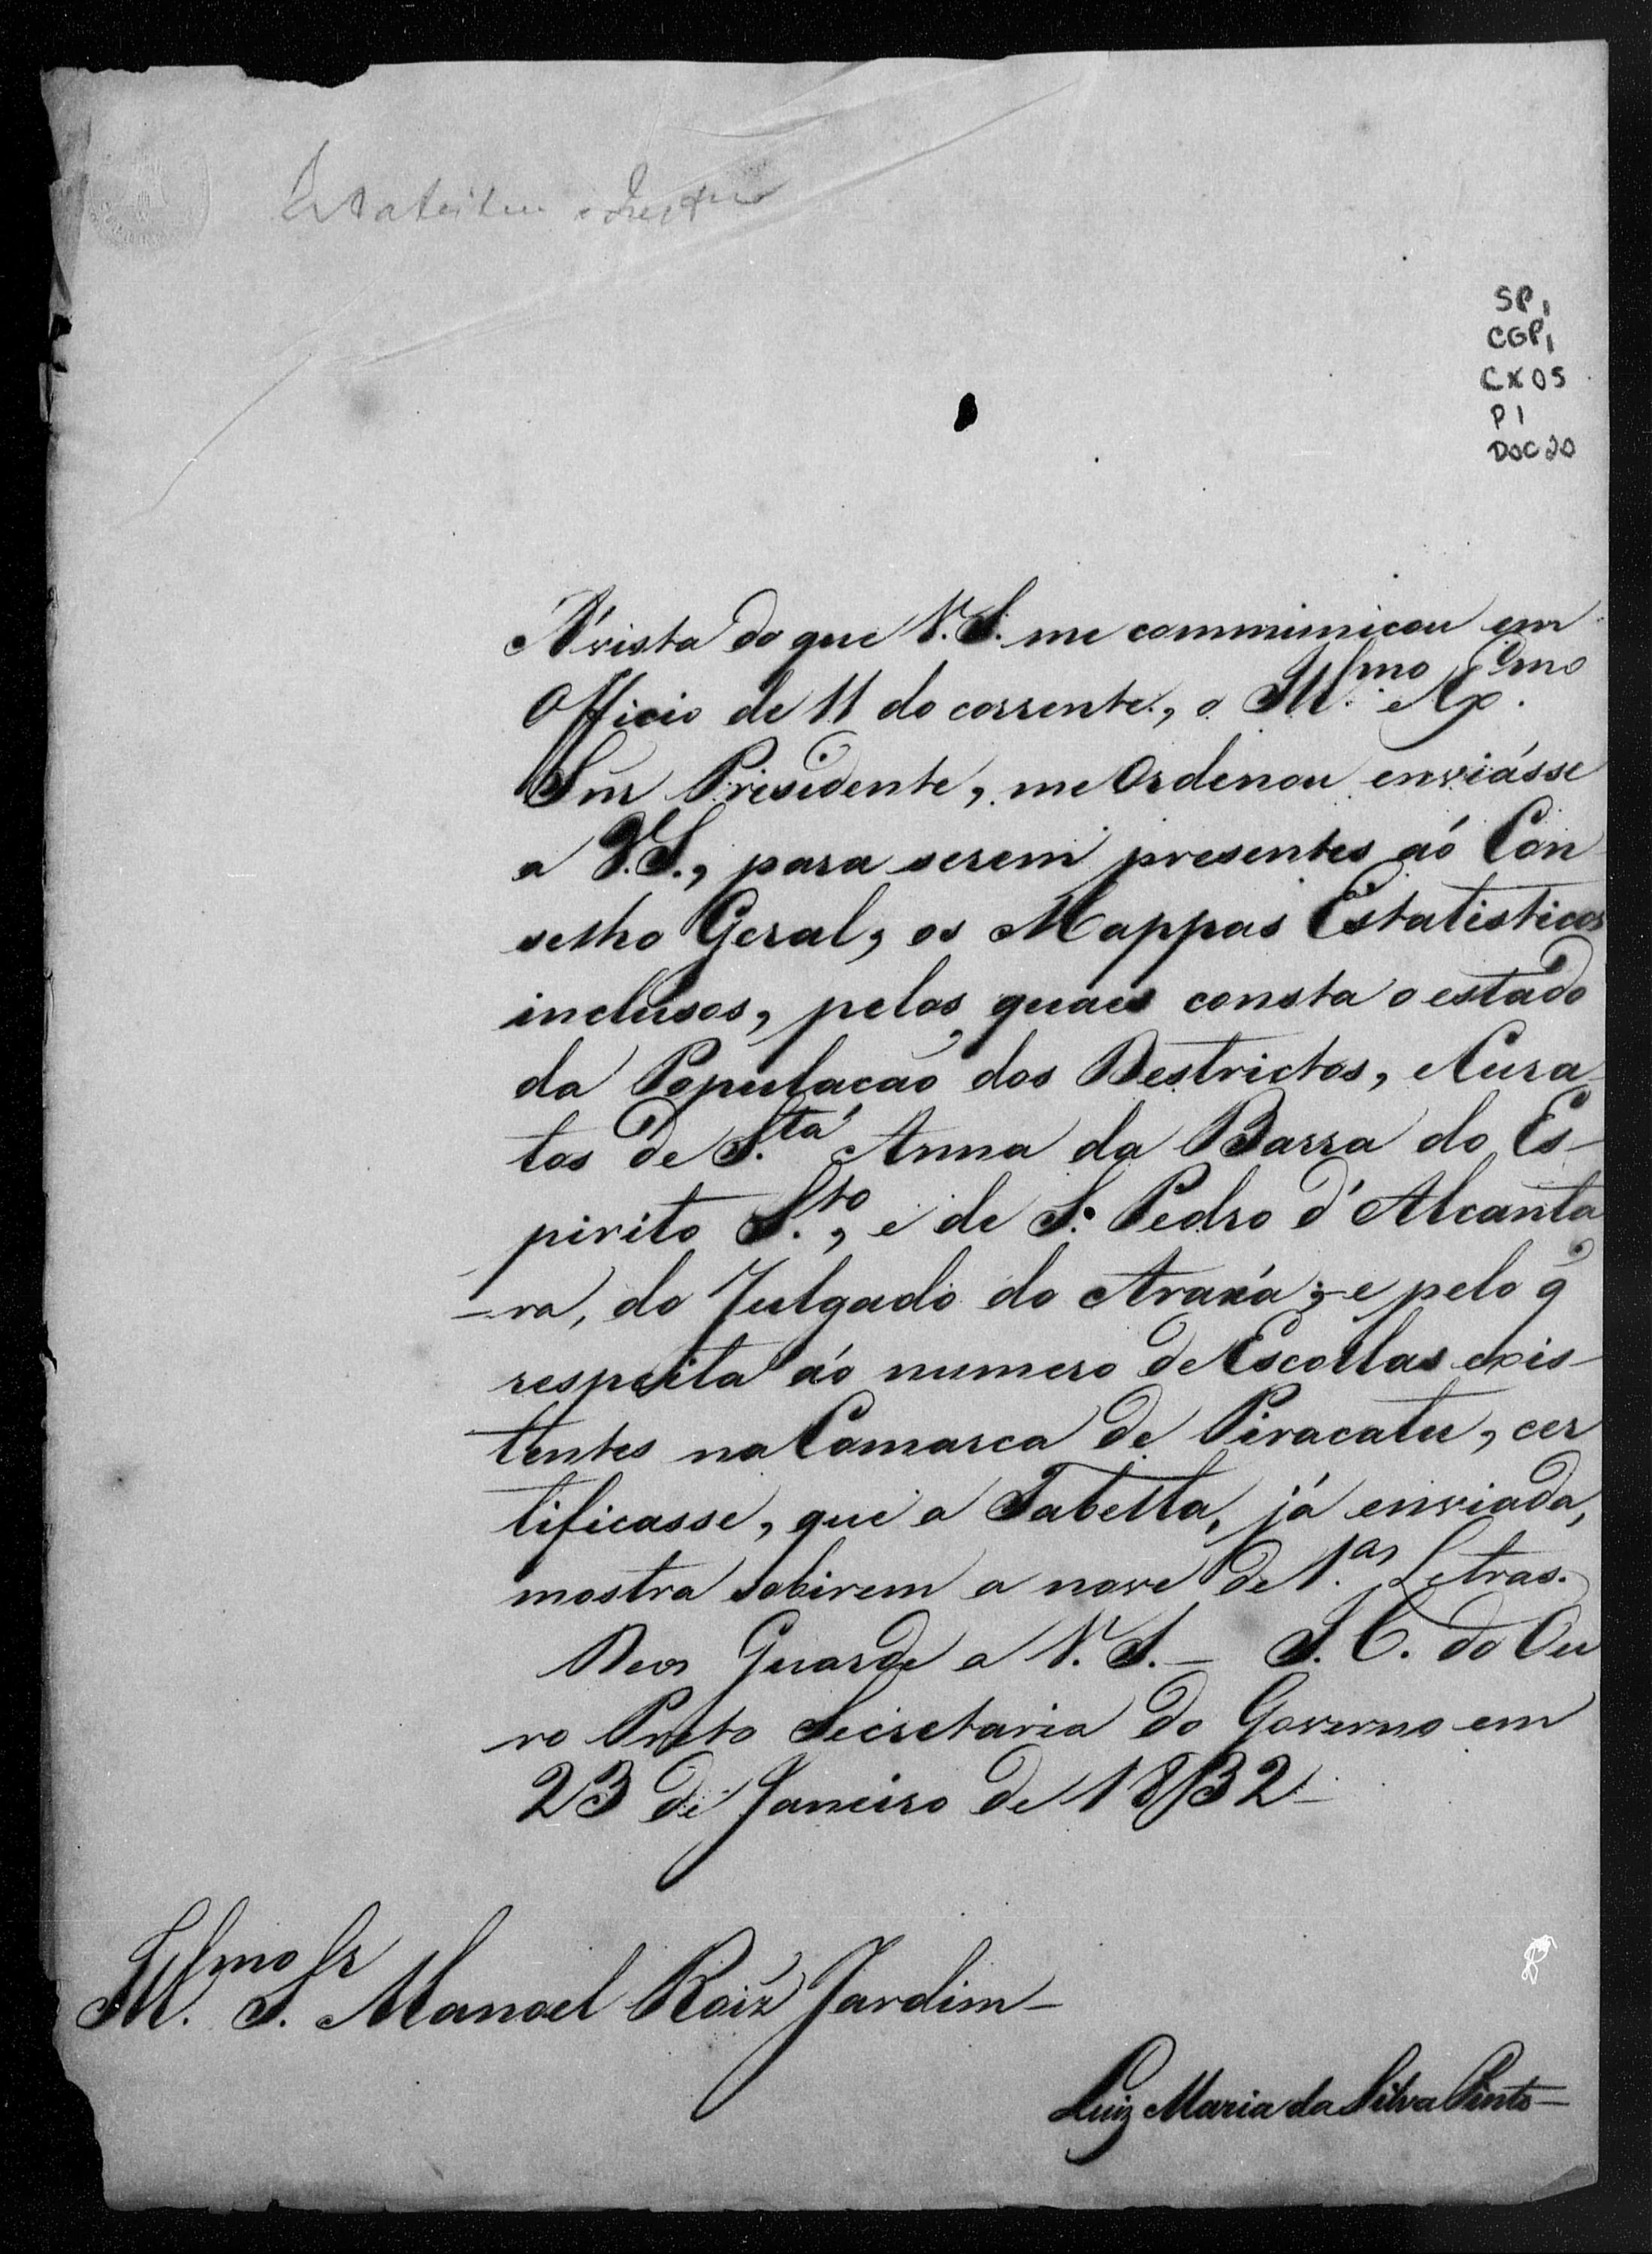 SP1
CGP1
CX05
P1
DOC 20
A' vista do que V.S. me communicou em
Officio de 11 do corrente, o Ill.mo e Ex.mo
Snr Presidente, me Ordenou enviásse
a V.S., para serem presentes aó Con
selho Geral, os Mappas Estatisticos
inclusos, pelos quaes consta o estado
da População dos Destrictos, e Cura
tos de S.ta Anna da Barra do Es-
pirito S.to, e de S. Pedro d'Alcanta
-ra, do Julgado do Araxá; e pelo q̃
respeita áo numero de Escollas exis-
tentes na Comarca de Piracatu, cer
tificasse, que a Tabella, já enviada,
mostra sobirem a nove de 1.as Letras.
Deos Guarde a V.S. - I.C. do Ou
ro Preto Secretaria do Governo em
23 de Janeiro de 1832-
Ill.mo Sr. Manoel Roiz Jardim-
Luiz Maria da Silva Pinto-